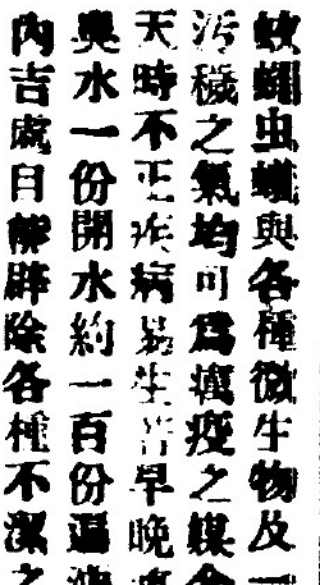 蚊蠅虫蟻與各種微生物及一
污穢之氣均可爲瘟疫之媒
天時不正疾病易生早晚
臭水一份開水約一百份
內吉處自能辟除各種不潔之